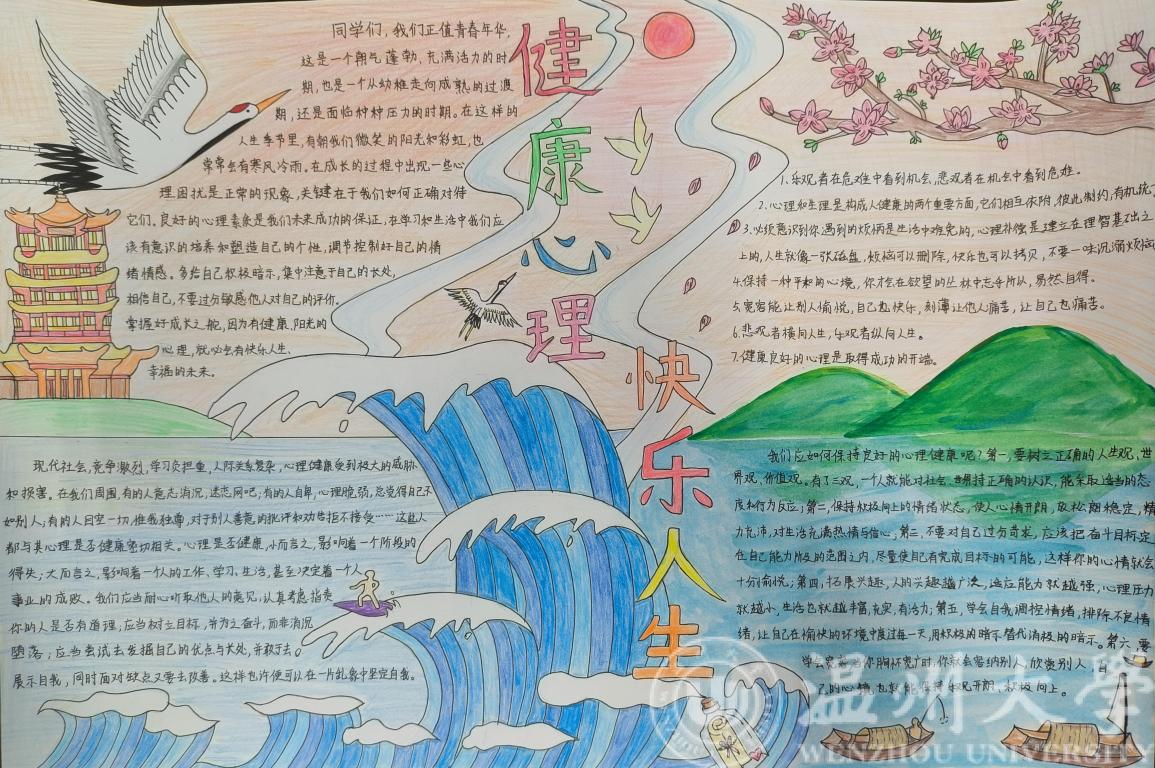 健康心理
快乐人生
同学们，我们正值青春年华，
这是一个朝气蓬勃、充满活力的时
期，也是一个从幼稚走向成熟的过渡
期，还是面临种种压力的时期。在这样的
人生季节里，有朝我们微笑的阳光和彩虹，也
常常会有寒风冷雨。在成长的过程中出现一些心
理困扰是正常的现象，关键在于我们如何正确对待
它们。良好的心理素质是我们未来成功的保证，在学习和生活中我们应
该有意识的培养和塑造自己的个性，调节控制好自己的情
绪情感。多给自己积极暗示，集中注意于自己的长处，
相信自己，不要过分敏感他人对自己的评价。
掌握好成长之舵，因为有健康、阳光的
心理，就必会有快乐人生、
幸福的未来。
1.乐观者在危难中看到机会，悲观者在机会中看到危难。
2.心理和生理是构成人健康的两个重要方面，它们相互依附，彼此制约，有机统一
3.必须意识到你遇到的烦恼是生活中难免的，心理补偿是建立在理智基础之
上的，人生就像一张磁盘，烦恼可以删除，快乐也可以拷贝，不要一味沉溺烦恼
4.保持一种平和的心境，你才会在欲望的丛林中忘乎所以，易然自得。
5.宽容能让别人愉悦，自己也快乐，刻薄让他人痛苦，让自己也痛苦。
6.悲观者横向人生，乐观者纵向人生。
7.健康良好的心理是取得成功的开端。
现代社会，竞争激烈，学习负担重，人际关系繁杂，心理健康受到极大的威胁
和损害。在我们周围，有的人意志消沉，迷恋网吧；有的人自卑，心理脆弱，总觉得自己不
如别人；有的人目空一切，惟我独尊，对于别人善意的批评和劝告拒不接受……这些人
都与其心理是否健康密切相关。心理是否健康，小而言之，影响着一个阶段的
得失；大而言之，影响着一个人的工作、学习、生活，甚至决定着一个人
事业的成败。我们应当耐心听取他人的意见，认真考虑指责
你的人是否有道理，应当树立目标，并为之奋斗，而非消沉
堕落；应当尝试去发掘自己的优点与长处，并敢于去
展示自我，同时面对缺点又要去改善。这样也许便可以在一片乱象中坚定自我。
我们应如何保持良好的心理健康呢？第一，要树立正确的人生观，世
界观，价值观。有了三观，一个人就能对社会、世界持正确的认识，能采取适当的态
度和行为反应；第二，保持积极向上的情绪状态，使人心情开朗，敢松期稳定，精
力充沛，对生活充满热情与信心，第三，不要对自己过分苛求，应该把奋斗目标定
在自己能力所及的范围之内，尽量使自己有完成目标的可能，这样你的心情就会
十分愉悦；第四，拓展兴趣，人的兴趣越广泛，适应能力就越强，心理压力
就越小，生活也就越丰富，充实，有活力；第五，学会自我调控情绪，排除不良情
绪，让自己在愉快的环境中度过每一天，用积极的暗示替代消极的暗示。第六，要
学会宽容，当你胸怀宽广时，你就会容纳别人，欣赏别人，自
己的心情也就能保持乐观开朗，积极向上。
温州大学
WENZHOU UNIVERSITY